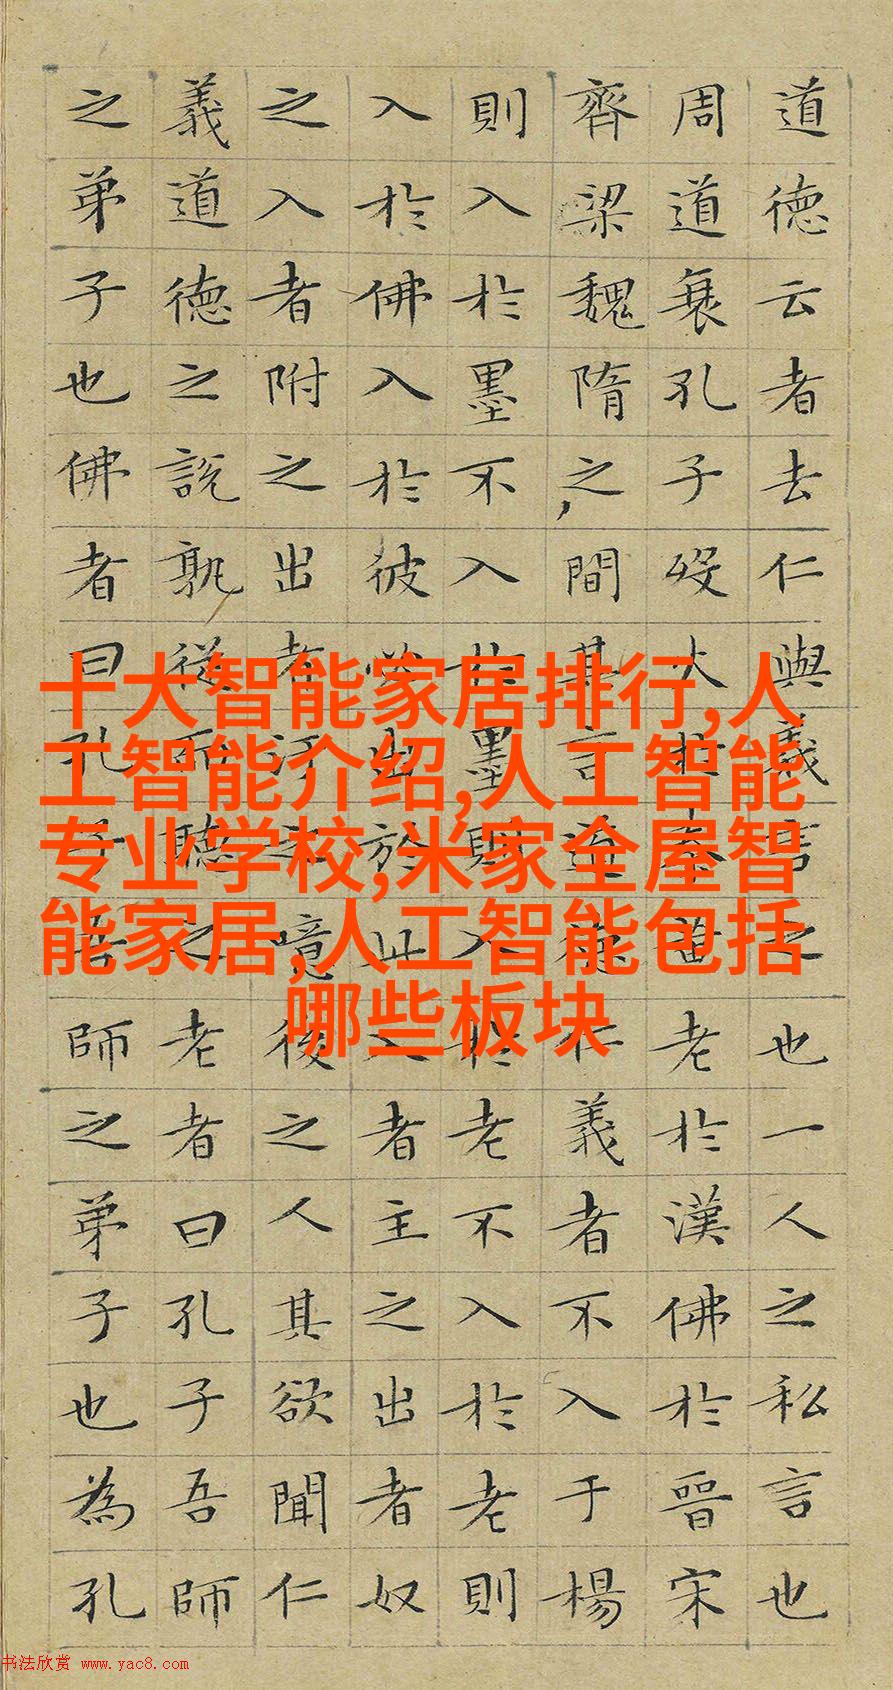 道德云者去仁與義言之也一人之私言也
周道衰孔子歿火於秦黃老於漢佛於晉宋
齊梁魏隋之間其言道德仁義者不入于楊
則入於墨不入於墨則入於老不入於老則
入於佛入於彼必出於此入者主之出者奴
之入者附之出者汙之噫後之人其欲聞仁
義道德之說孰從而聽之老者曰孔子吾師
之弟子也佛者曰孔子吾師之弟子也為孔
十大智能家居排行,人
工智能介绍,人工智能
专业学校,米家全屋智
能家居,人工智能包括
哪些板块
书法欣赏 www.yac8.com